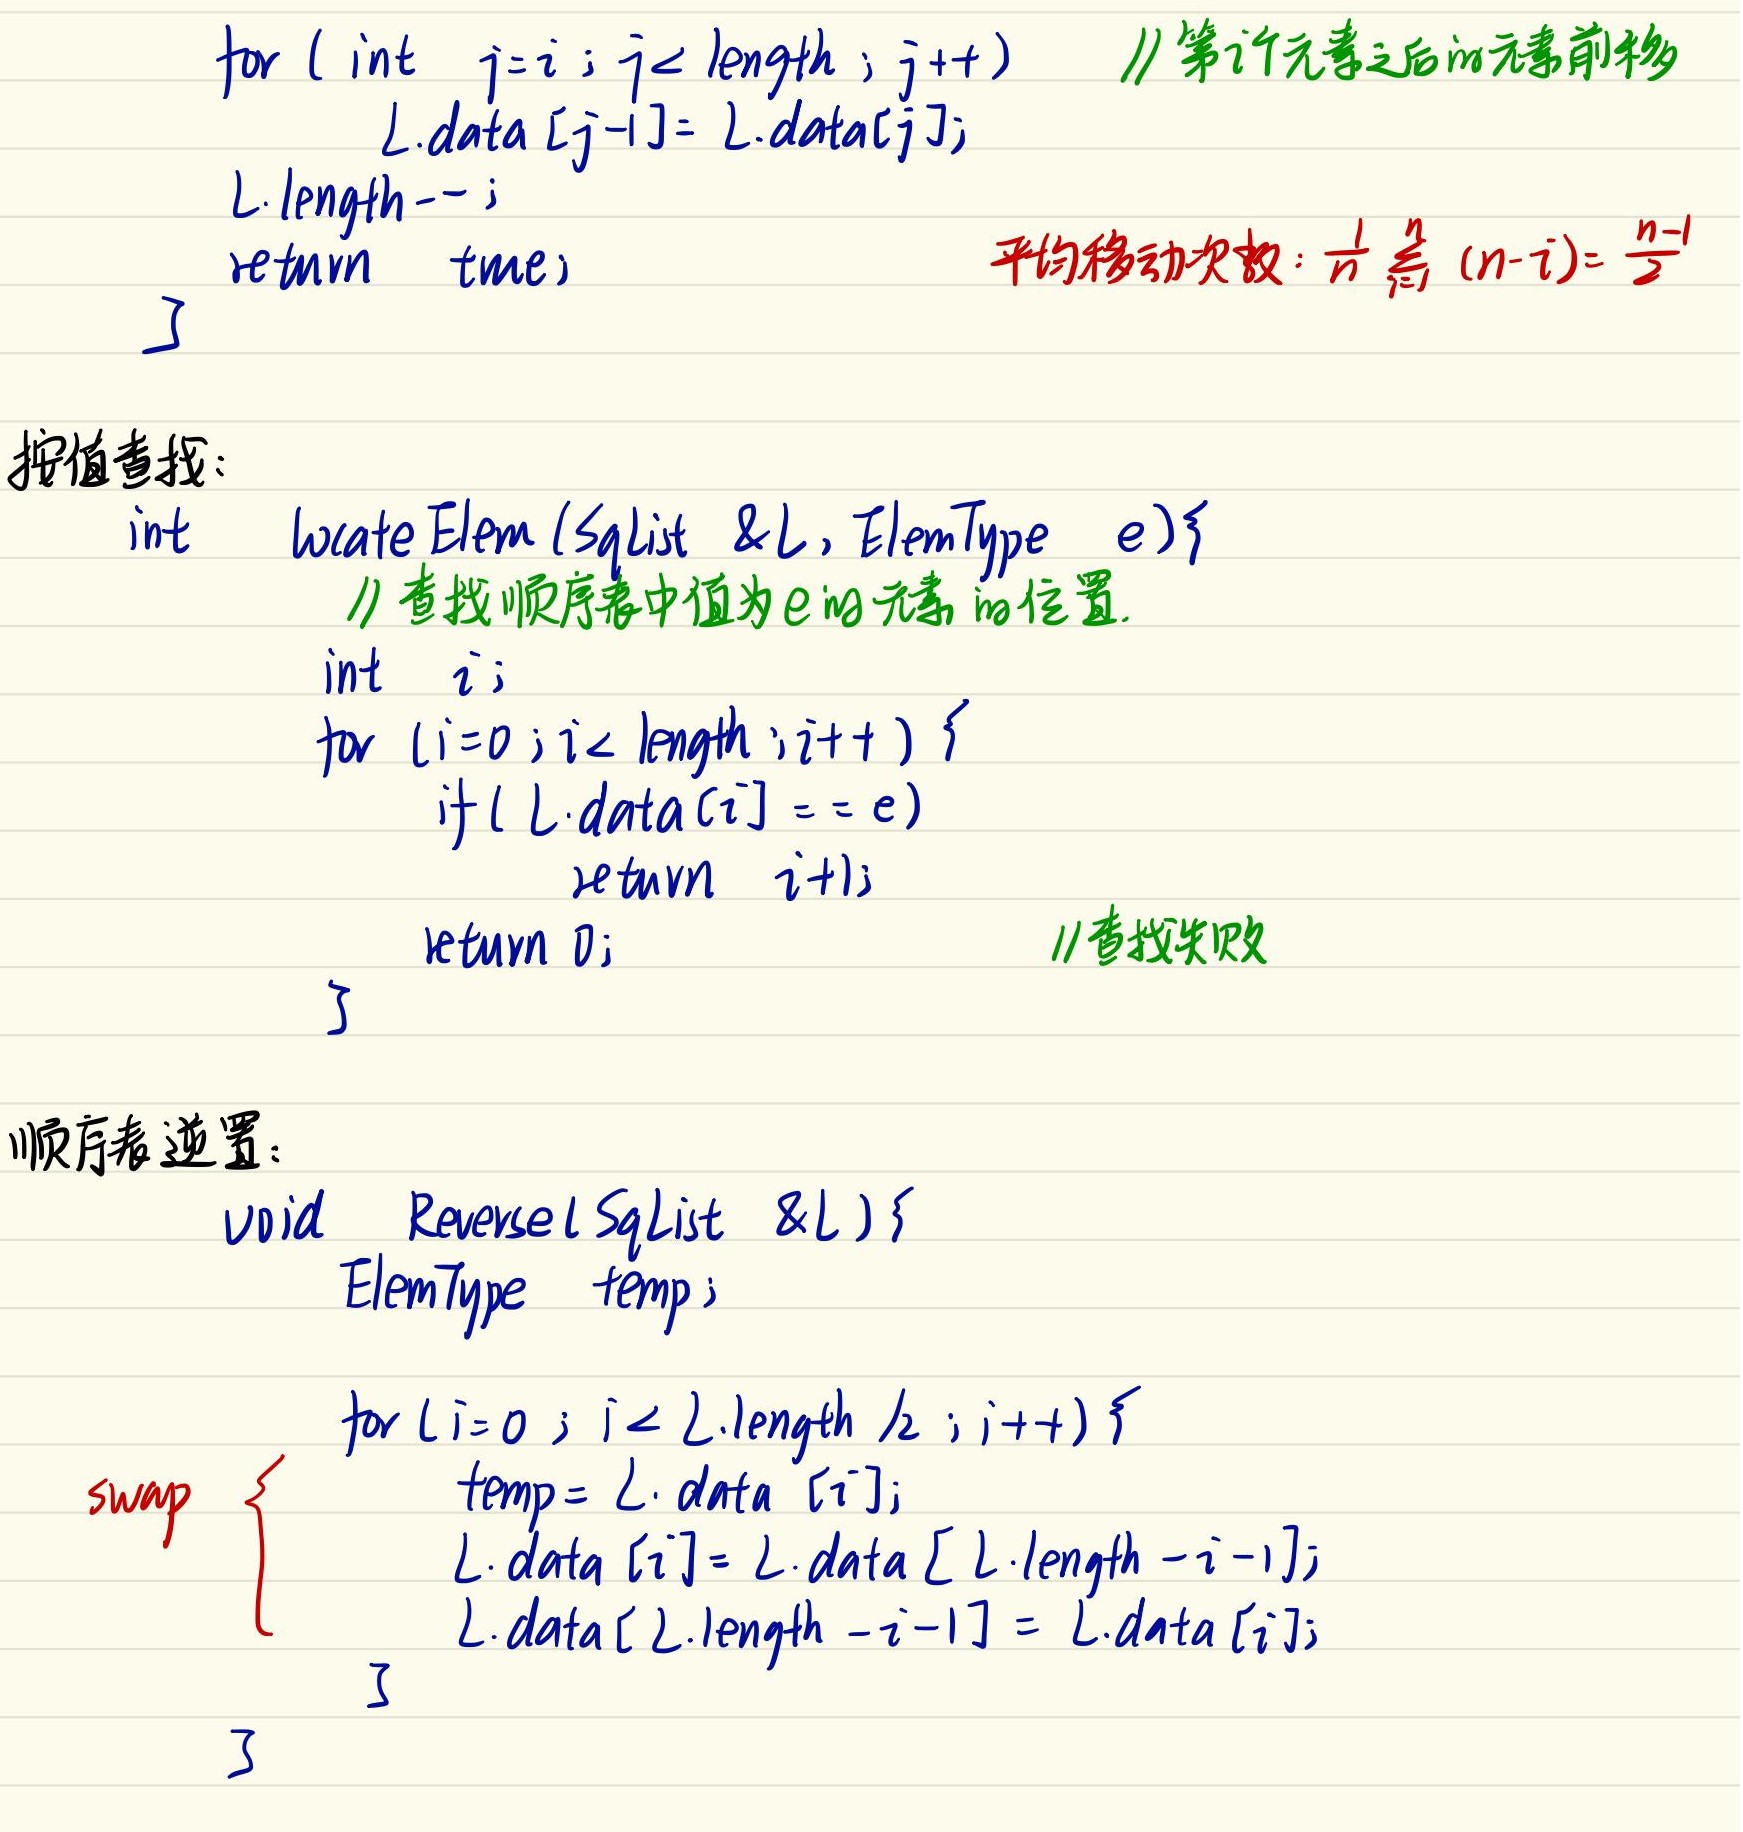 for ( int j=i ; j< length ; j++) //第i个元素之后的元素前移
L.data [j-1]= L.data[j];
L.length--;
return true; 平均移动次数: 1/n ∑_{i=1}^{n} (n-i)= (n-1)/2
}
按值查找:
int LocateElem (SqList &L, ElemType e){
//查找顺序表中值为e的元素的位置.
int i;
for (i=0 ; i< length ; i++ ) {
if( L.data[i] == e)
return i+1;
return 0; //查找失败
}
顺序表逆置:
void Reverse( SqList &L ) {
ElemType temp;
for (i=0 ; i< L.length /2 ; i++) {
swap { temp= L.data [i];
L.data [i]= L.data [ L.length -i-1];
L.data[ L.length -i-1] = L.data [i];
}
}